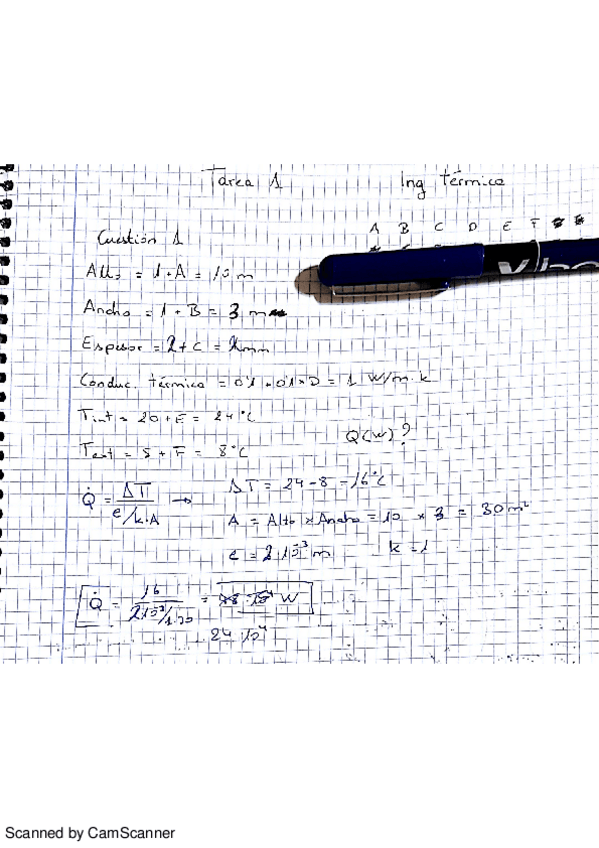 Tarea 1 Ing térmica
A B C D E F
Cuestión 1
Alto = 1 + A = 10 m
Ancho = 1 + B = 3 m
Espesor = 2 + C = 2mm
Conduc. térmica = 0'1 + 0'1 × D = 1 W/m·k
Tint = 20 + E = 24°C
Text = 5 + F = 8°C
Q(W)?
Q̇ = ΔT / e/k·A → ΔT = 24 - 8 = 16°C
A = Alto × Ancho = 10 × 3 = 30 m²
e = 2 10⁻³ m k = 1
Q̇ = 16 / 2 10⁻³/1·30 = W
24 10⁴
Scanned by CamScanner